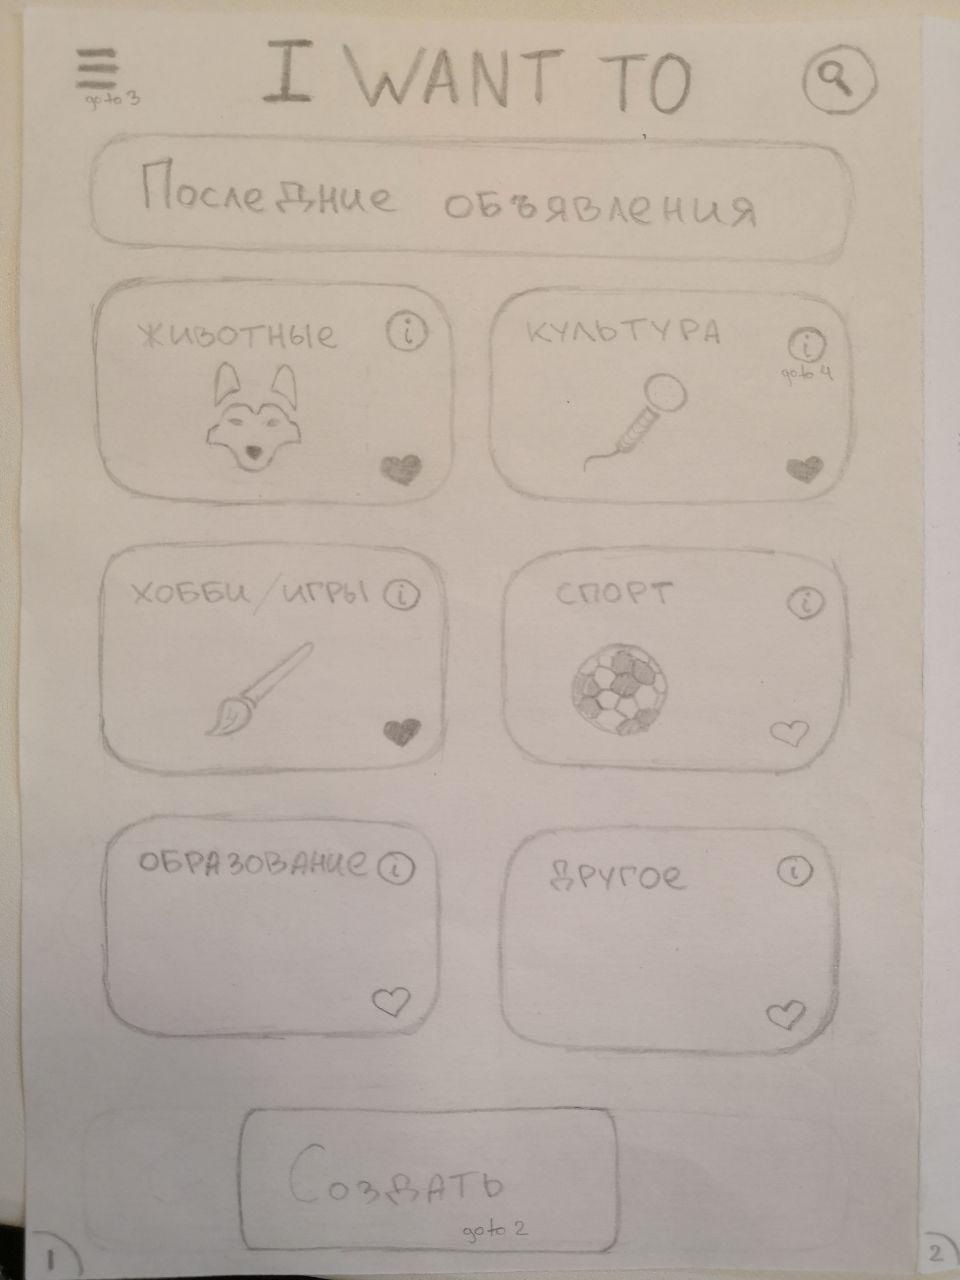 I WANT TO
go to 3
Последние объявления
ЖИВОТНЫе
i
КУЛЬТУРА
i
go to 4
ХОББИ/ИГРЫ
i
СПОРТ
i
ОБРАЗОВАНИЕ
i
ДРУГОЕ
i
Создать
go to 2
1
2